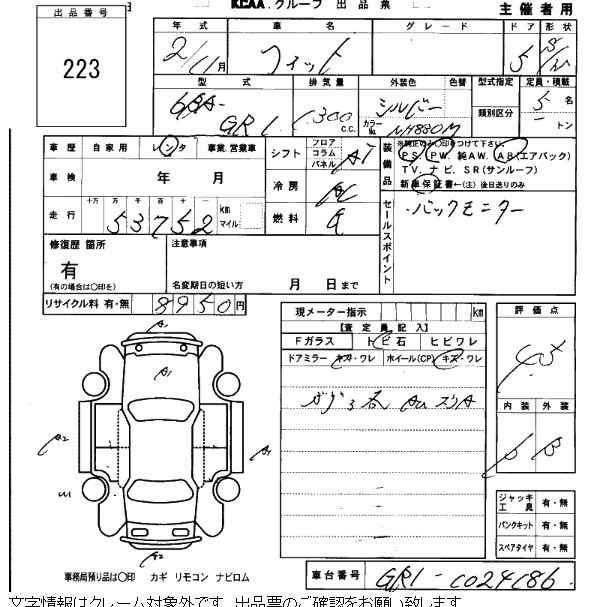 KCAA.グループ 出品票
主催者用
出品番号
223
年式 車名 グレード ドア 形状
2/11月 フィット 5
型式 排気量 外装色 色替 型式指定 定員・積載
6BA- GR1 1300 c.c. シルバー カラーNo. NH830M 類別区分 5名 トン
車歴 自家用 レンタ 事業.営業車
シフト フロア コラム パネル AT
装備品
純正のみ〇印をつけて下さい.
PS. PW. 純AW. AB(エアバック)
TV. ナビ. SR(サンルーフ)
新車保証書←(主)後日送りのみ
車検 年 月
冷房 AC
走行 十万 万 千 百 十 一 53752 km マイル
燃料 G
セールスポイント
バックモニター
修復歴 箇所
有
(有の場合は〇印を)
注意事項
名変期日の短い方 月 日まで
リサイクル料 有・無 8950円
現メーター指示 km
【査定員記入】
Fガラス トビ石 ヒビワレ
ドアミラー キズ・ワレ ホイール(CP) キズ・ワレ
評価点
内装 外装
B B
A1
A2
A1
A2
ジャッキ工具 有・無
パンクキット 有・無
スペアタイヤ 有・無
事務局預り品は〇印 カギ リモコン ナビロム
車台番号 GR1-
文字情報はクレーム対象外です。出品票のご確認をお願い致します